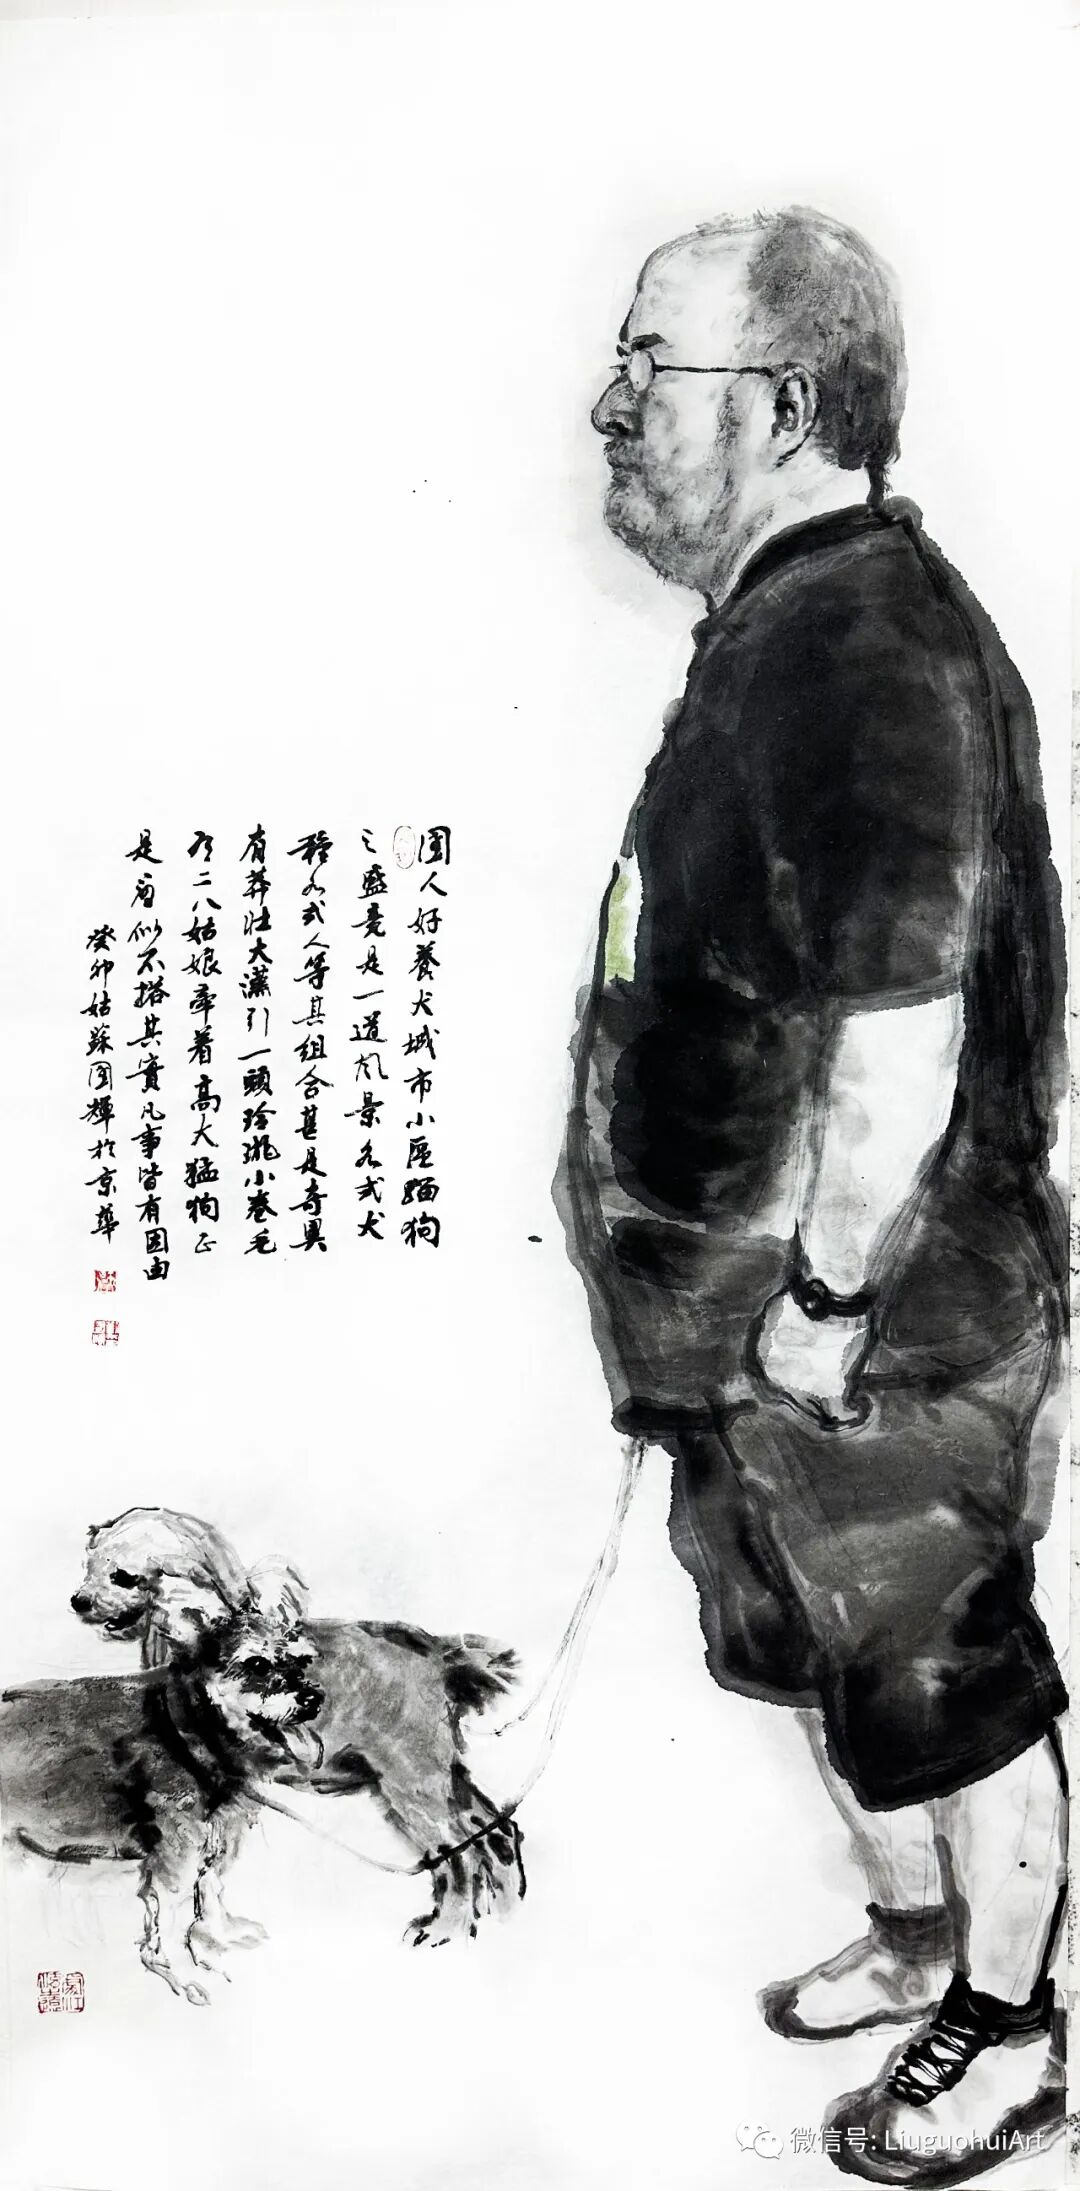 國人好養犬城市小區貓狗
之盛竟是一道风景各式犬
種各式人等其組合甚是奇異
有莽壮大漢引一頭玲瓏小卷毛
有二八姑娘牽着高大猛狗正
是看似不搭其實凡事皆有因由
癸卯姑蘇國輝於京華
微信号: LiuguohuiArt